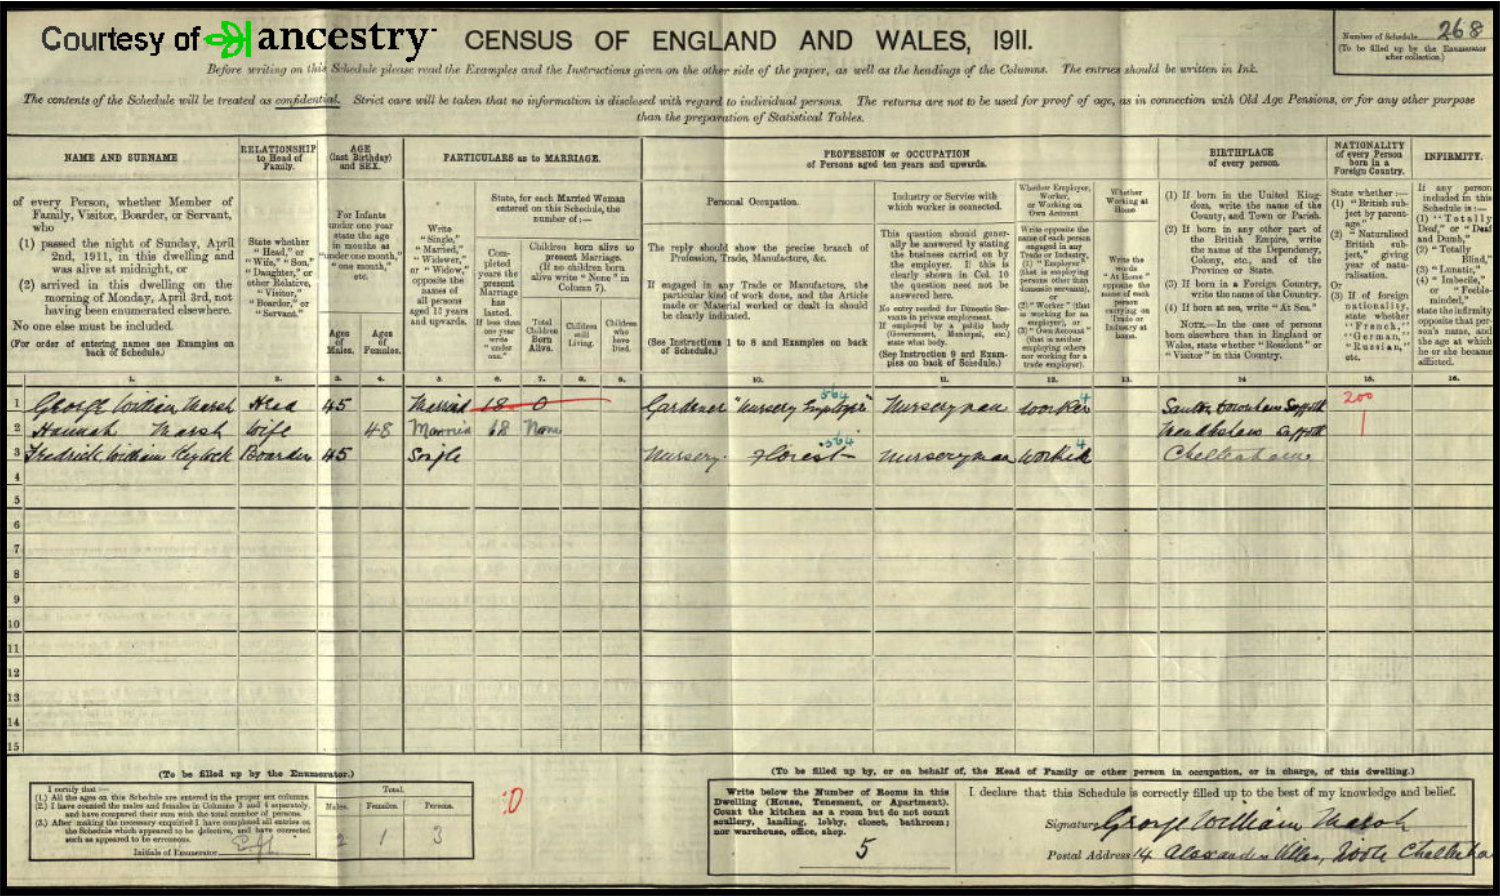 Courtesy of ancestry
CENSUS OF ENGLAND AND WALES, 1911.
Number of Schedule 268
(To be filled up by the Enumerator after collection.)
Before writing on this Schedule please read the Examples and the Instructions given on the other side of the paper, as well as the headings of the Columns. The entries should be written in Ink.
The contents of the Schedule will be treated as confidential. Strict care will be taken that no information is disclosed with regard to individual persons. The returns are not to be used for proof of age, as in connection with Old Age Pensions, or for any other purpose
than the preparation of Statistical Tables.
NAME AND SURNAME
RELATIONSHIP
to Head of
Family.
AGE
(last Birthday)
and SEX.
PARTICULARS as to MARRIAGE.
PROFESSION or OCCUPATION
of Persons aged ten years and upwards.
BIRTHPLACE
of every person.
NATIONALITY
of every Person
born in a
Foreign Country.
INFIRMITY.
of every Person, whether Member of
Family, Visitor, Boarder, or Servant,
who
(1) passed the night of Sunday, April
2nd, 1911, in this dwelling and
was alive at midnight, or
(2) arrived in this dwelling on the
morning of Monday, April 3rd, not
having been enumerated elsewhere.
No one else must be included.
(For order of entering names see Examples on
back of Schedule.)
State whether
"Head," or
"Wife," "Son,"
"Daughter," or
other Relative,
"Visitor,"
"Boarder," or
"Servant."
For Infants
under one year
state the age
in months as
"under one month,"
"one month,"
etc.
Ages
of
Males.
Ages
of
Females.
Write
"Single,"
"Married,"
"Widower,"
or "Widow,"
opposite the
names of
all persons
aged 15 years
and upwards.
State, for each Married Woman
entered on this Schedule, the
number of:—
Completed
years the
present
Marriage
has
lasted.
If less than
one year
write
"under
one."
Children born alive to
present Marriage.
(If no children born
alive write "None" in
Column 7).
Total
Children
Born
Alive.
Children
still
Living.
Children
who
have
Died.
Personal Occupation.
The reply should show the precise branch of
Profession, Trade, Manufacture, &c.
If engaged in any Trade or Manufacture, the
particular kind of work done, and the Article
made or Material worked or dealt in should
be clearly indicated.
(See Instructions 1 to 8 and Examples on back
of Schedule.)
Industry or Service with
which worker is connected.
This question should generally
be answered by stating
the business carried on by
the employer. If this is
clearly shown in Col. 10
the question need not be
answered here.
No entry needed for Domestic Servants
in private employment.
If employed by a public body
(Government, Municipal, etc.)
state what body.
(See Instruction 9 and Examples
on back of Schedule.)
Whether Employer,
Worker,
or Working on
Own Account
Write opposite the
name of each person
engaged in any
Trade or Industry,
(1) "Employer"
(that is employing
persons other than
domestic servants),
or
(2) "Worker" (that
is working for an
employer), or
(3) "Own Account"
(that is neither
employing others
nor working for a
trade employer).
Whether
Working at
Home.
Write the
words
"At Home"
opposite the
name of each
person
carrying on
Trade or
Industry at
home.
(1) If born in the United Kingdom,
write the name of the
County, and Town or Parish.
(2) If born in any other part of
the British Empire, write
the name of the Dependency,
Colony, etc., and of the
Province or State.
(3) If born in a Foreign Country,
write the name of the Country.
(4) If born at sea, write "At Sea."
NOTE.—In the case of persons
born elsewhere than in England or
Wales, state whether "Resident" or
"Visitor" in this Country.
State whether:—
(1) "British subject
by parentage."
(2) "Naturalised
British subject,"
giving
year of naturalisation.
Or
(3) If of foreign
nationality,
state whether
"French,"
"German,"
"Russian,"
etc.
If any person
included in this
Schedule is:—
(1) "Totally
Deaf," or "Deaf
and Dumb,"
(2) "Totally
Blind,"
(3) "Lunatic,"
(4) "Imbecile,"
or "Feeble-minded,"
state the infirmity
opposite that person's
name, and
the age at which
he or she became
afflicted.
1. 2. 3. 4. 5. 6. 7. 8. 9. 10. 11. 12. 13. 14 15. 16.
1 George William Marsh Head 45 Married 18 0 Gardener "Nursery Employee" 564 Nurseryman Worker 4 Santon Downham Suffolk 200
2 Hannah Marsh Wife 48 Married 18 None Suffolk 1
3 Fredrick William Boarder 45 Single Nursery Florest 564 Nurseryman Worker 4 Cheltenham
4
5
6
7
8
9
10
11
12
13
14
15
(To be filled up by the Enumerator.)
I certify that:—
(1.) All the ages on this Schedule are entered in the proper sex columns.
(2.) I have counted the males and females in Columns 3 and 4 separately,
and have compared their sum with the total number of persons.
(3.) After making the necessary enquiries I have completed all entries on
the Schedule which appeared to be defective, and have corrected
such as appeared to be erroneous.
Initials of Enumerator
Total.
Males. Females. Persons.
2 1 3
:0
(To be filled up by, or on behalf of, the Head of Family or other person in occupation, or in charge, of this dwelling.)
Write below the Number of Rooms in this
Dwelling (House, Tenement, or Apartment).
Count the kitchen as a room but do not count
scullery, landing, lobby, closet, bathroom;
nor warehouse, office, shop.
5
I declare that this Schedule is correctly filled up to the best of my knowledge and belief.
Signature George William Marsh
Postal Address 14 Alexandra Villas,